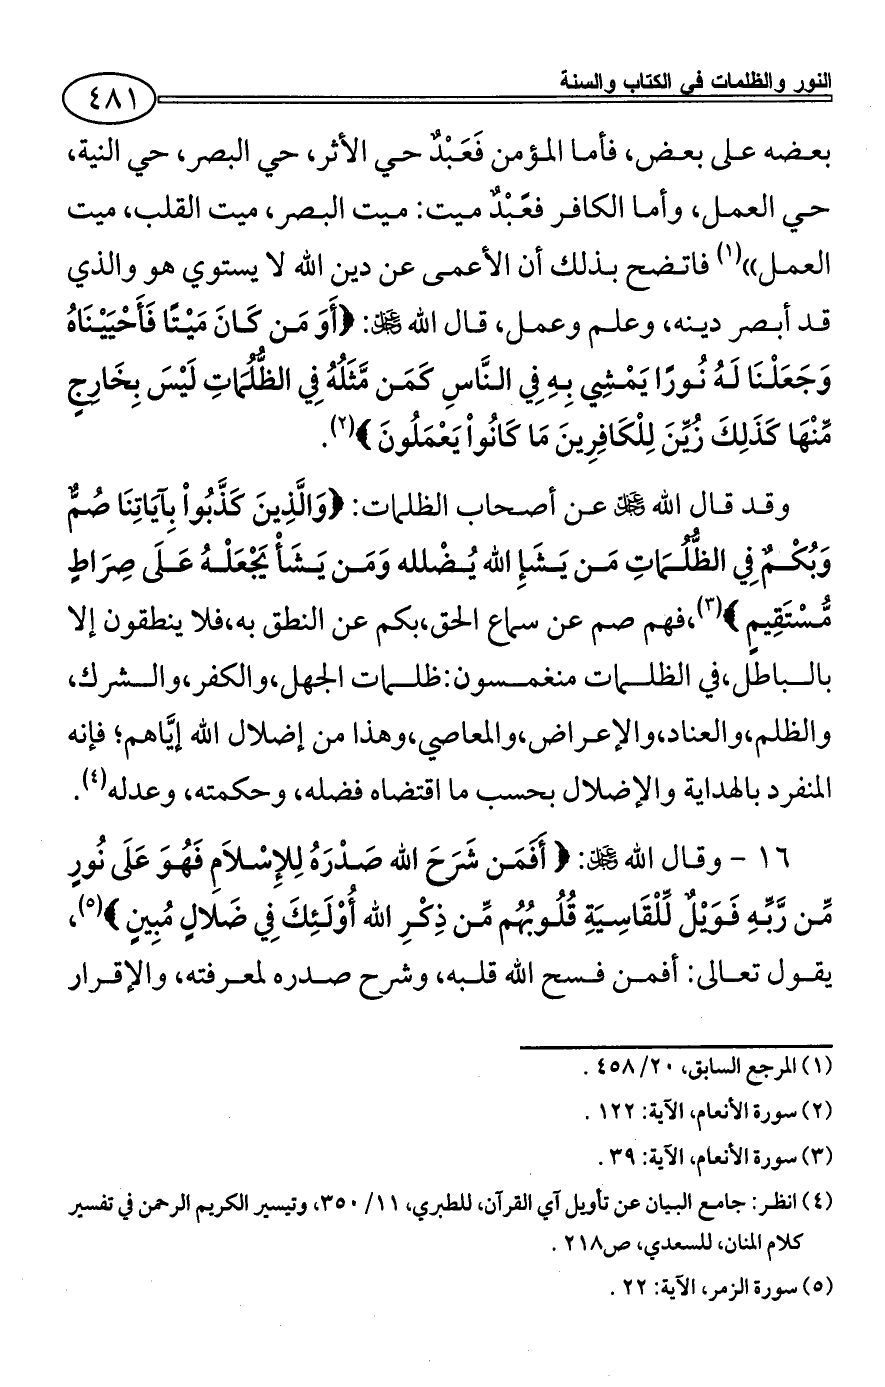 النور والظلمات في الكتاب والسنة
٤٨١
بعضه على بعض، فأما المؤمن فَعَبْدٌ حي الأثر، حي البصر، حي النية،
حي العمل، وأما الكافر فعَبْدٌ ميت: ميت البصر، ميت القلب، ميت
العمل»(١) فاتضح بذلك أن الأعمى عن دين الله لا يستوي هو والذي
قد أبصر دينه، وعلم وعمل، قال الله ﷻ: ﴿أَوَ مَن كَانَ مَيْتًا فَأَحْيَيْنَاهُ
وَجَعَلْنَا لَهُ نُورًا يَمْشِي بِهِ فِي النَّاسِ كَمَن مَّثَلُهُ فِي الظُّلُمَاتِ لَيْسَ بِخَارِجٍ
مِّنْهَا كَذَلِكَ زُيِّنَ لِلْكَافِرِينَ مَا كَانُواْ يَعْمَلُونَ﴾(٢).
وقد قال الله ﷻ عن أصحاب الظلمات: ﴿وَالَّذِينَ كَذَّبُواْ بِآيَاتِنَا صُمٌّ
وَبُكْمٌ فِي الظُّلُمَاتِ مَن يَشَإِ الله يُضْلله وَمَن يَشَأْ يَجْعَلْهُ عَلَى صِرَاطٍ
مُّسْتَقِيمٍ﴾(٣)،فهم صم عن سماع الحق،بكم عن النطق به،فلا ينطقون إلا
بالباطل،في الظلمات منغمسون:ظلمات الجهل،والكفر،والشرك،
والظلم،والعناد،والإعراض،والمعاصي،وهذا من إضلال الله إيَّاهم؛ فإنه
المنفرد بالهداية والإضلال بحسب ما اقتضاه فضله، وحكمته، وعدله(٤).
١٦ - وقال الله ﷻ: ﴿أَفَمَن شَرَحَ الله صَدْرَهُ لِلإِسْلاَمِ فَهُوَ عَلَى نُورٍ
مِّن رَّبِّهِ فَوَيْلٌ لِّلْقَاسِيَةِ قُلُوبُهُم مِّن ذِكْرِ الله أُوْلَئِكَ فِي ضَلالٍ مُبِينٍ﴾(٥)،
يقول تعالى: أفمن فسح الله قلبه، وشرح صدره لمعرفته، والإقرار
(١) المرجع السابق، ٢٠/ ٤٥٨ .
(٢) سورة الأنعام، الآية: ١٢٢ .
(٣) سورة الأنعام، الآية: ٣٩ .
(٤) انظر: جامع البيان عن تأويل آي القرآن، للطبري، ١١/ ٣٥٠، وتيسير الكريم الرحمن في تفسير
كلام المنان، للسعدي، ص٢١٨ .
(٥) سورة الزمر، الآية: ٢٢ .